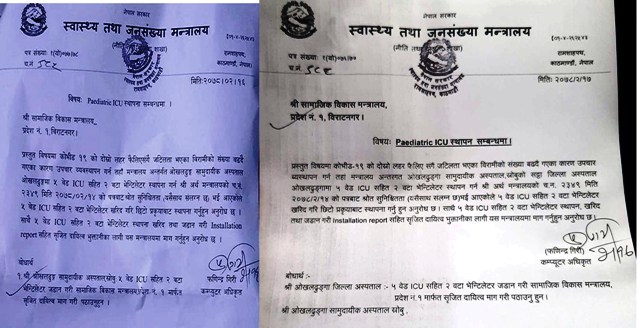 नेपाल सरकार
स्वास्थ्य तथा जनसंख्या मन्त्रालय
(नीति
शाखा)
रामशाहपथ,
काठमाण्डौ, नेपाल
पत्र संख्या:
च.नं. ५८९
मिति:२०७८/०२/१६
विषय: Paediatric ICU स्थापना सम्बन्धमा ।
श्री सामाजिक विकास मन्त्रालय,
प्रदेश नं. १, विराटनगर ।
प्रस्तुत विषयमा कोभीड-१९ को दोस्रो लहर फैलिएसँगै जटिलता भएका विरामीको संख्या बढ्दै
गएका कारण उपचार व्यवस्थापन गर्न तहाँ मन्त्रालय अन्तर्गत ओखलढुङ्गा सामुदायीक अस्पताल
ओखलढुङ्गामा ५ वेड ICU सहित २ वटा भेन्टिलेटर स्थापना गर्न श्री अर्थ मन्त्रालयको च.न.
२३४९ मिति २०७८/०२/१४ को पत्रबाट श्रोत सुनिश्चितता (यसैसाथ सलग्न छ) भई आएकोले
५ वेड ICU सहित २ वटा भेन्टिलेटर खरिद गरि छिटो प्रकृयाबाट स्थापना गर्नुहुन अनुरोध छ ।
साथै ५ वेड ICU सहित २ वटा भेन्टिलेटर खरिद तथा जडान गरी Installation
report सहित सृजित दायित्व भुक्तानीका लागी यस मन्त्रालयमा माग गर्नुहुन अनुरोध छ ।
(फणिन्द्र गिरी)
कम्प्युटर अधिकृत
बोधार्थ
श्री ओखलढुङ्गा सामुदायीक अस्पताल
५ वेड ICU सहित २ वटा
भेन्टिलेटर जडान गरी सामाजिक विकास मन्त्रालय,प्रदेश नं.१ मार्फत
सृजित दायित्व माग गरी पठाउनुहुन ।
नेपाल सरकार
स्वास्थ्य तथा जनसंख्या मन्त्रालय
(नीति
शाखा)
रामशाहपथ,
काठमाण्डौ, नेपाल
पत्र संख्या:
च.नं. ५८९
मिति: २०७८/२/१७
श्री सामाजिक विकास मन्त्रालय,
प्रदेश नं. १, विराटनगर ।
विषय: Paediatric ICU स्थापन सम्बन्धमा ।
प्रस्तुत विषयमा कोभीड-१९ को दोस्रो लहर फैलिए सगै जटिलता भएका विरामीको संख्या बढ्दै गएका कारण उपचार
व्यवस्थापन गर्न तहाँ मन्त्रालय अन्तरगत ओखलढुङ्गा सामुदायीक अस्पताल,सोबुको सट्टा जिल्ला अस्पताल
ओखलढुङ्गामा ५ वेड ICU सहित २ वटा भेन्टिलेटर स्थापना गर्न श्री अर्थ मन्त्रालयको च.न. २३४९ मिति
२०७८/२/१४ को पत्रबाट श्रोत सुनिश्चितता (यसैसाथ सलग्न छ)भई आएकोले ५ वेड ICU सहित २ वटा भेन्टिलेटर
खरिद गरि छिटो प्रकृयाबाट स्थापना गर्नु हुन अनुरोध छ । साथै ५ वेड ICU सहित २ वटा भेन्टिलेटर स्थापन, खरिद
तथा जडान गरी Installation report सहित सृजित दायित्व भुक्तानीका लागी यस मन्त्रालयमा माग गर्नुहुन अनुरोध छ ।
(फणिन्द्र गिरी)
कम्प्युटर अधिकृत
बोधार्थ :-
श्री ओखलढुङ्गा जिल्ला अस्पताल :- ५ वेड ICU सहित २ वटा भेन्टिलेटर जडान गरी सामाजिक विकास मन्त्रालय,
प्रदेश नं.१ मार्फत सृजित दायित्व माग गरी पठाउनु हुन ।
श्री ओखलढुङ्गा सामुदायीक अस्पताल सोबु ।